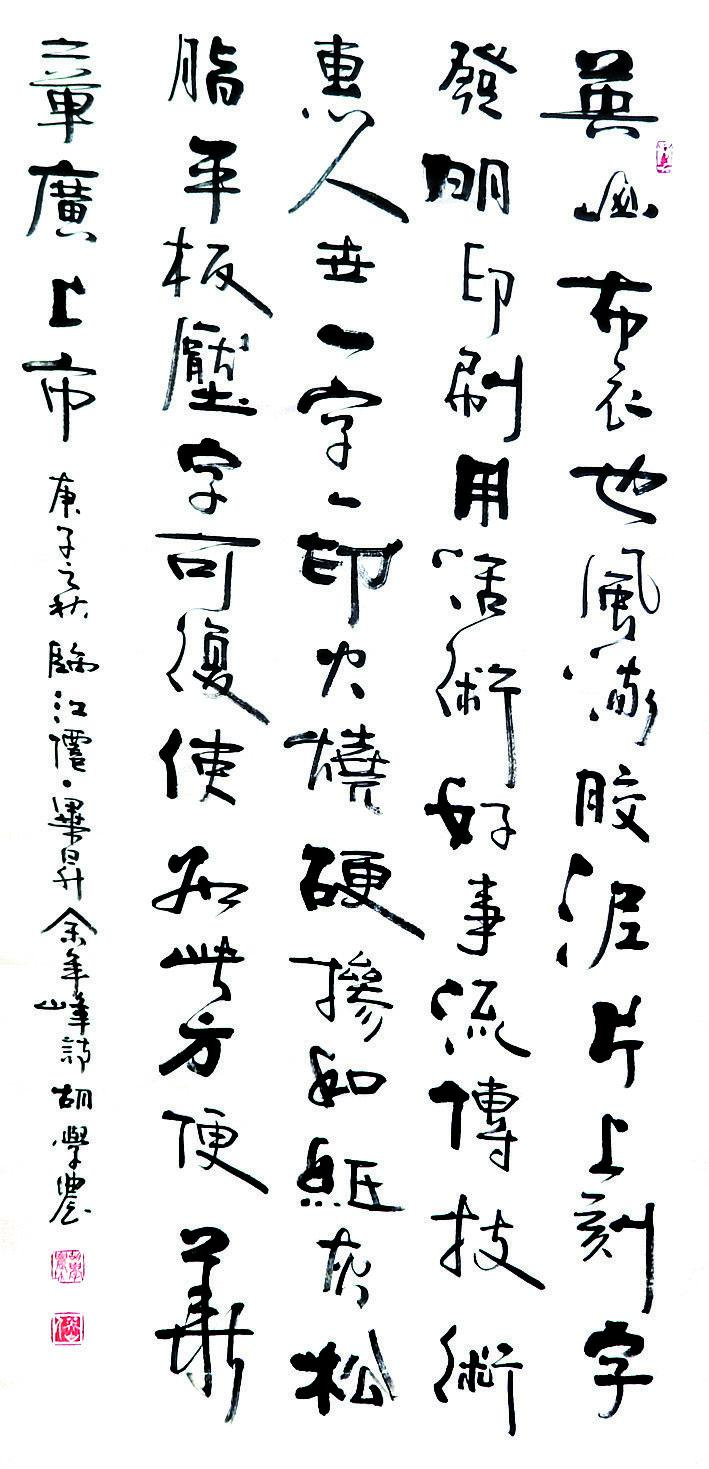 英山布衣也風胶泥片上刻字
發明印刷用活術好事流傳技術
惠人世一字一印火燒硬摻如紙灰松
脂平板壓字可復使如此方便華
章廣上市 庚子之秋臨江僊·畢昇余年峰詩胡學農